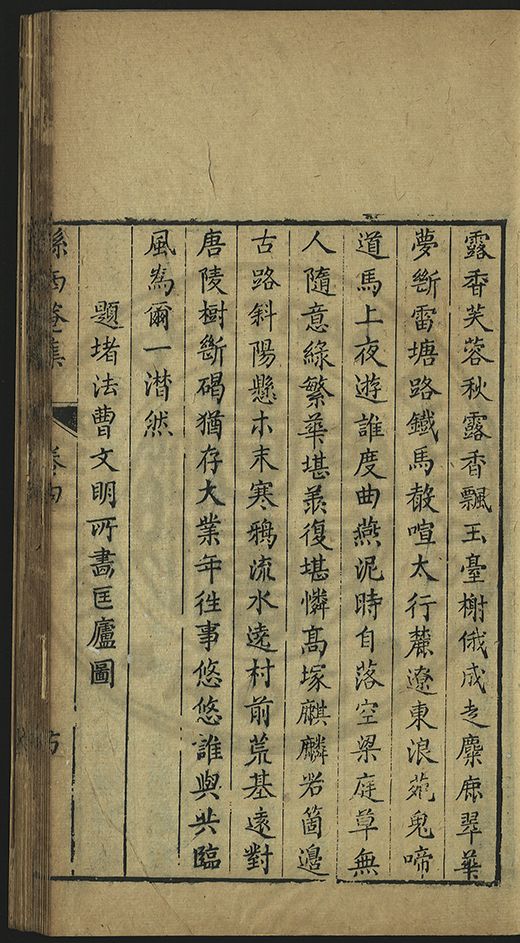 露香芙蓉秋露香飄玉臺榭俄成走麋鹿翠華
夢斷雷塘路鐵馬聲喧太行麓遼東浪苑鬼啼
道馬上夜遊誰度曲燕泥時自落空梁庭草無
人隨意緑繁華堪羨復堪憐髙塚麒麟若箇邊
古路斜陽懸木末寒鴉流水遶村前荒基遠對
唐陵樹斷碣猶存大業年徃事悠悠誰與共臨
風為爾一潸然
題堵法曹文明所畫匡廬圖
孫西菴集
卷四